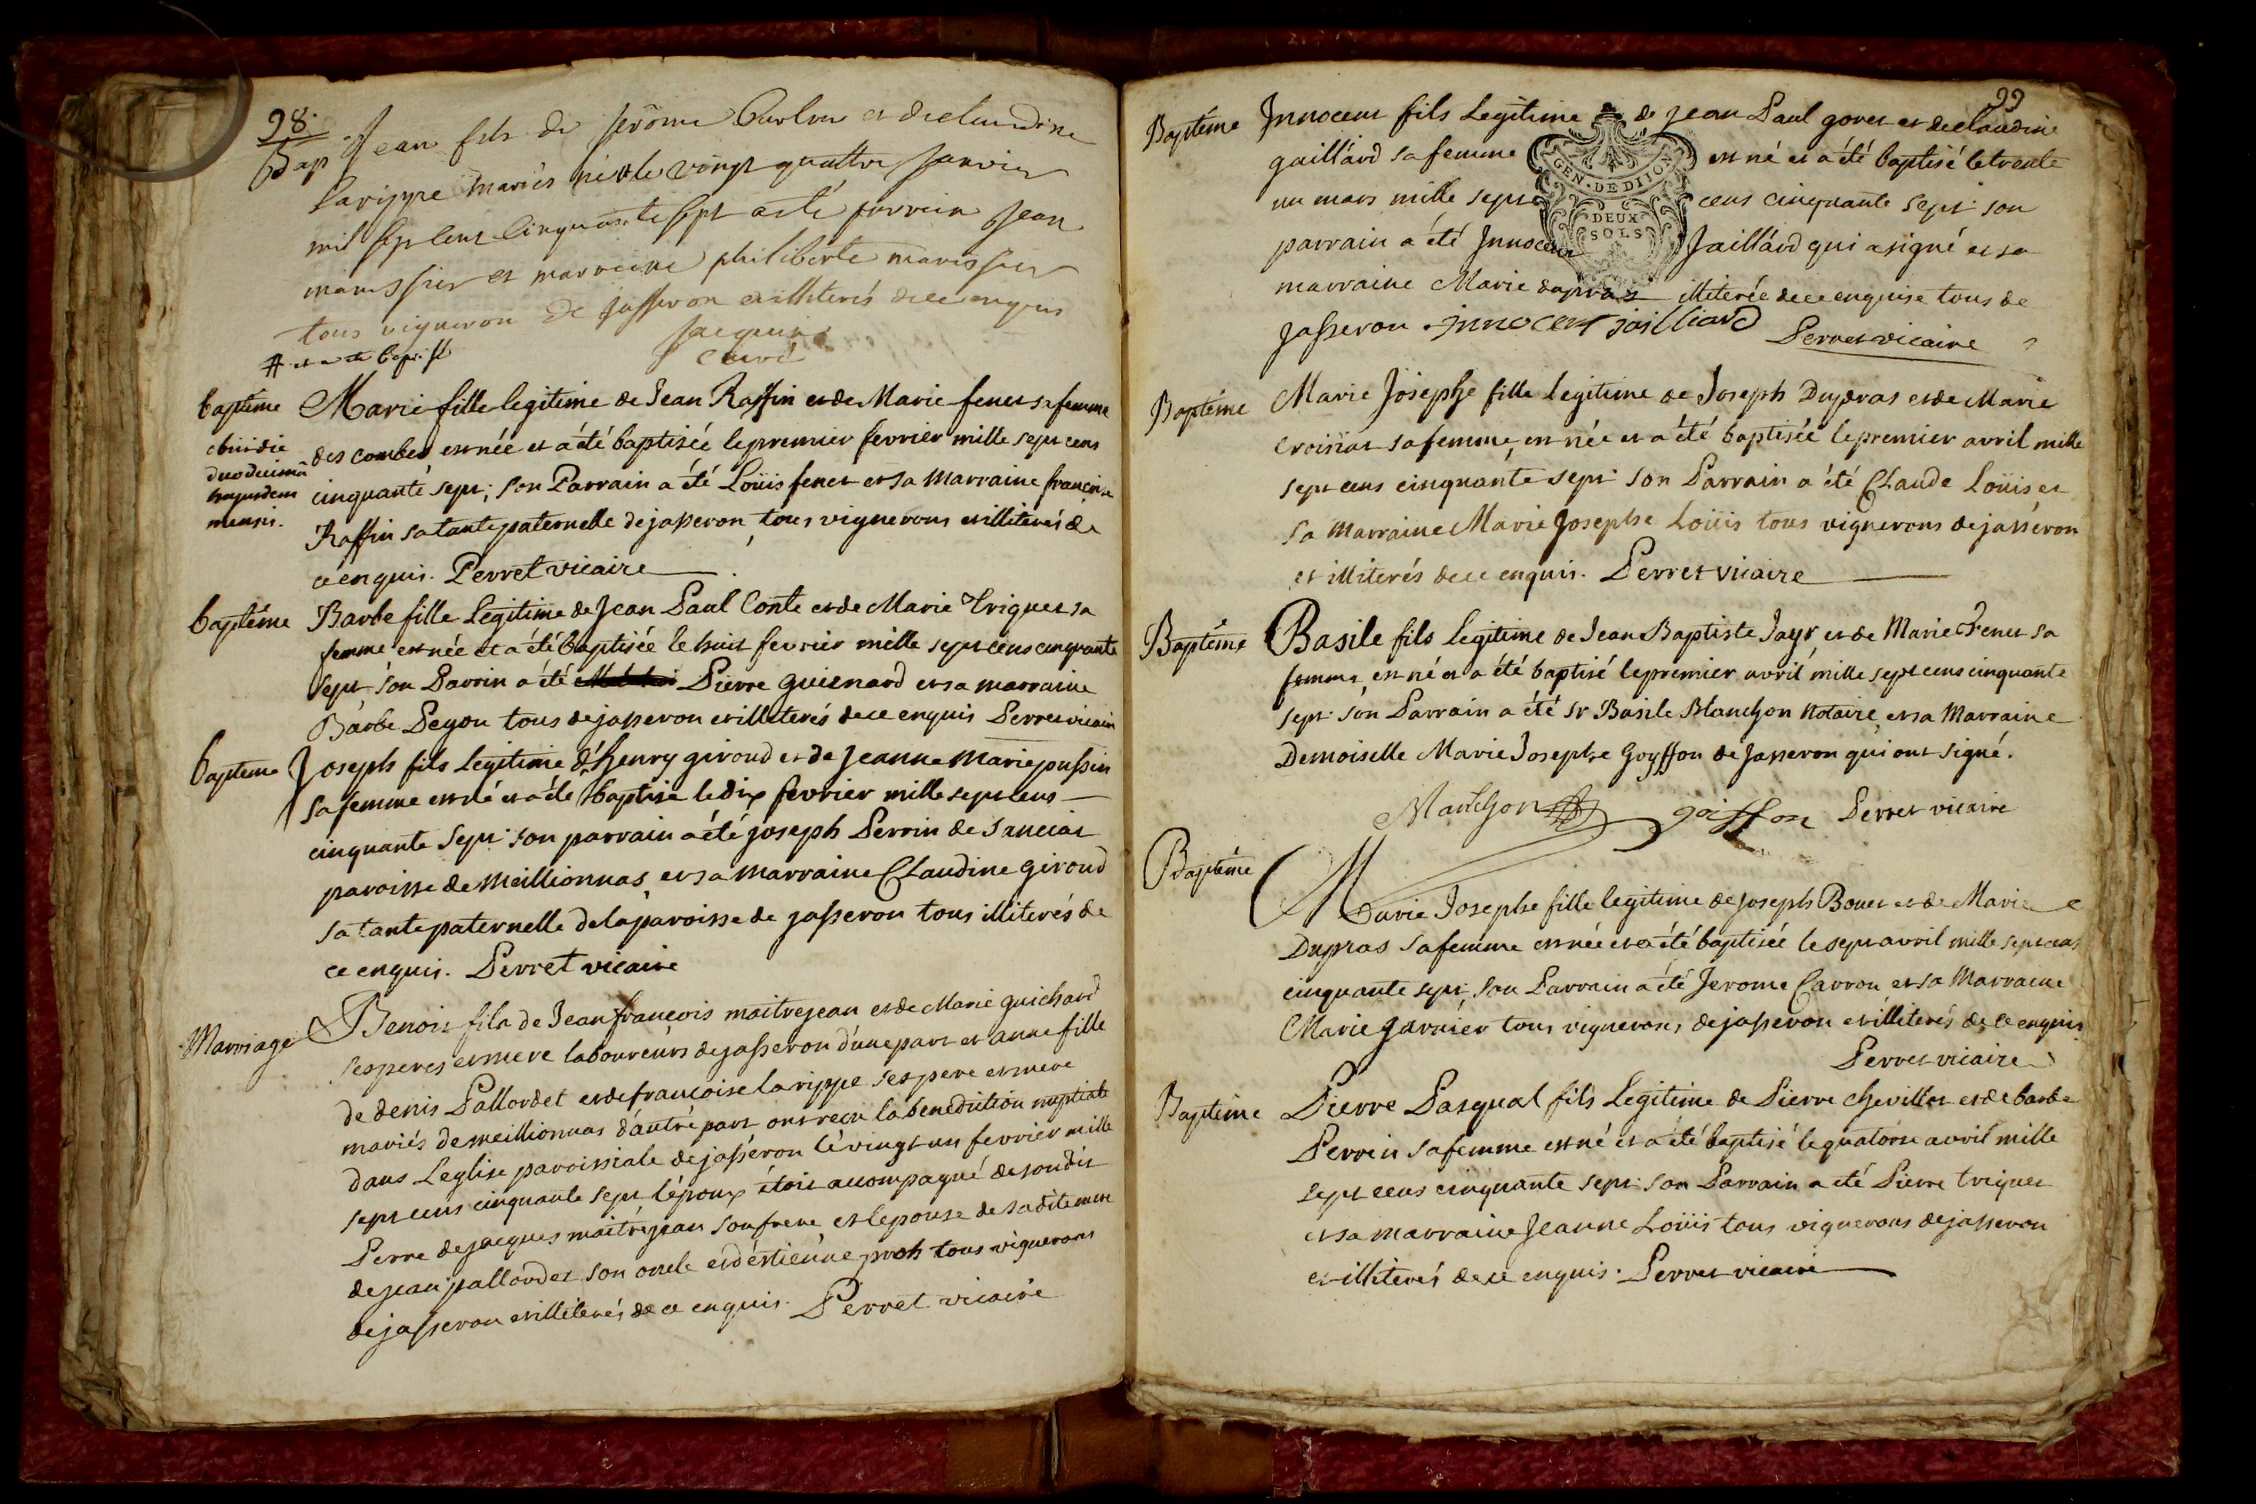 98.
Bap Jean fils de Jerôme Carlon et de claudine
Larippe mariés né # le vingt quattre Janvier
mil sept cent Cinquante sept a été parrein Jean
manissier et marreine philiberte manissier
tous vigneron de Jasseron et illiterés de ce enquis
# et a eté baptisé
Jacquin
Curé
baptême Marie fille legitime de Jean Raffin et de Marie fenet sa femme
obiit die des combes est née et a été baptisée le premier fevrier mille sept cens
duodecimâ cinquante sept; son Parrain a été Loüis fenet et sa Marraine françoise
hujusdem Raffin sa tante paternelle de jasseron tous vignerons et illiterés de
mensis. ce enquis. Perret vicaire
baptême Barbe fille Legitime de Jean Paul Conte et de Marie triquet sa
femme est née et a été baptisée le huit fevrier mille sept cens cinquante
sept son Parrin a été Pierre guienard et sa marraine
Barbe Peyou tous de jasseron et illiterés de ce enquis Perret vicaire
bapteme Joseph fils Legitime d'henry giroud et de Jeanne Marie pussin
sa femme est né et a été baptisé le dix fevrier mille sept cens
cinquante sept son parrain a été joseph Perrin de sanciat
paroisse de Meillionnas et sa marraine Claudine giroud
sa tante paternelle de la paroisse de jasseron tous illiterés de
ce enquis. Perret vicaire
Marriage Benoit fils de Jean françois maitrejean et de Marie guichard
ses peres et mere laboureurs de jasseron d'une part et anne fille
de denis Pallordet et de françoise larippe ses pere et mere
mariés de meillionnas d'autre part ont reçu la benediction nuptiale
dans L'eglise paroissiale de jasseron le vingt un fevrier mille
sept cens cinquante sept l'époux étoit accompagné de son dit
Perre de jacques maitrejean son frere et l'epouse de sa dite mere
de jean pallordet son oncle et d'éstienne proh tous vignerons
de jasseron et illiterés de ce enquis. Perret vicaire
99
Baptême Innocent fils Legitime de jean Paul goret et de claudine
gaillard sa femme est né et a été baptisé le trente
un mars mille sept cens cinquante sept son
parrain a été Innocent Jaillard qui a signé et sa
marraine Marie dupras illiterée de ce enquise tous de
Jasseron. innocent jailliard Perret vicaire
GEN. DE DIJON
DEUX
SOLS
Baptême Marie Josephe fille legitime de Joseph Dupras et de Marie
croisiat sa femme, est née et a été baptisée le premier avril mille
sept cens cinquante sept son Parrain a été Claude Loüis et
sa Marraine Marie Josephe Loüis tous vignerons de jasseron
et illiterés de ce enquis. Perret vicaire
Baptême Basile fils legitime de Jean Baptiste Jayr et de Marie Fenet sa
femme, est né et a été baptisé le premier avril mille sept cens cinquante
sept son Parrain a été Sr Basile Blanchon Notaire et sa Marraine
Demoiselle Marie Josephe Goyffon de Jasseron qui ont signé.
Blanchon goiffon Perret vicaire
Baptême Marie Josephe fille legitime de joseph Bouet et de Marie
Dupras sa femme est née et a été baptisée le sept avril mille sept cens
cinquante sept son Parrain a été Jerome Carron et sa Marraine
Marie Garnier tous vignerons de jasseron et illiterés de ce enquis.
Perret vicaire
Baptême Pierre Pasqual fils Legitime de Pierre chevillot et de barbe
Perrin sa femme est né et a été baptisé le quatorse avril mille
sept cens cinquante sept son Parrain a été Pierre triquet
et sa marraine Jeanne Loüis tous vignerons de jasseron
et illiterés de ce enquis. Perret vicaire